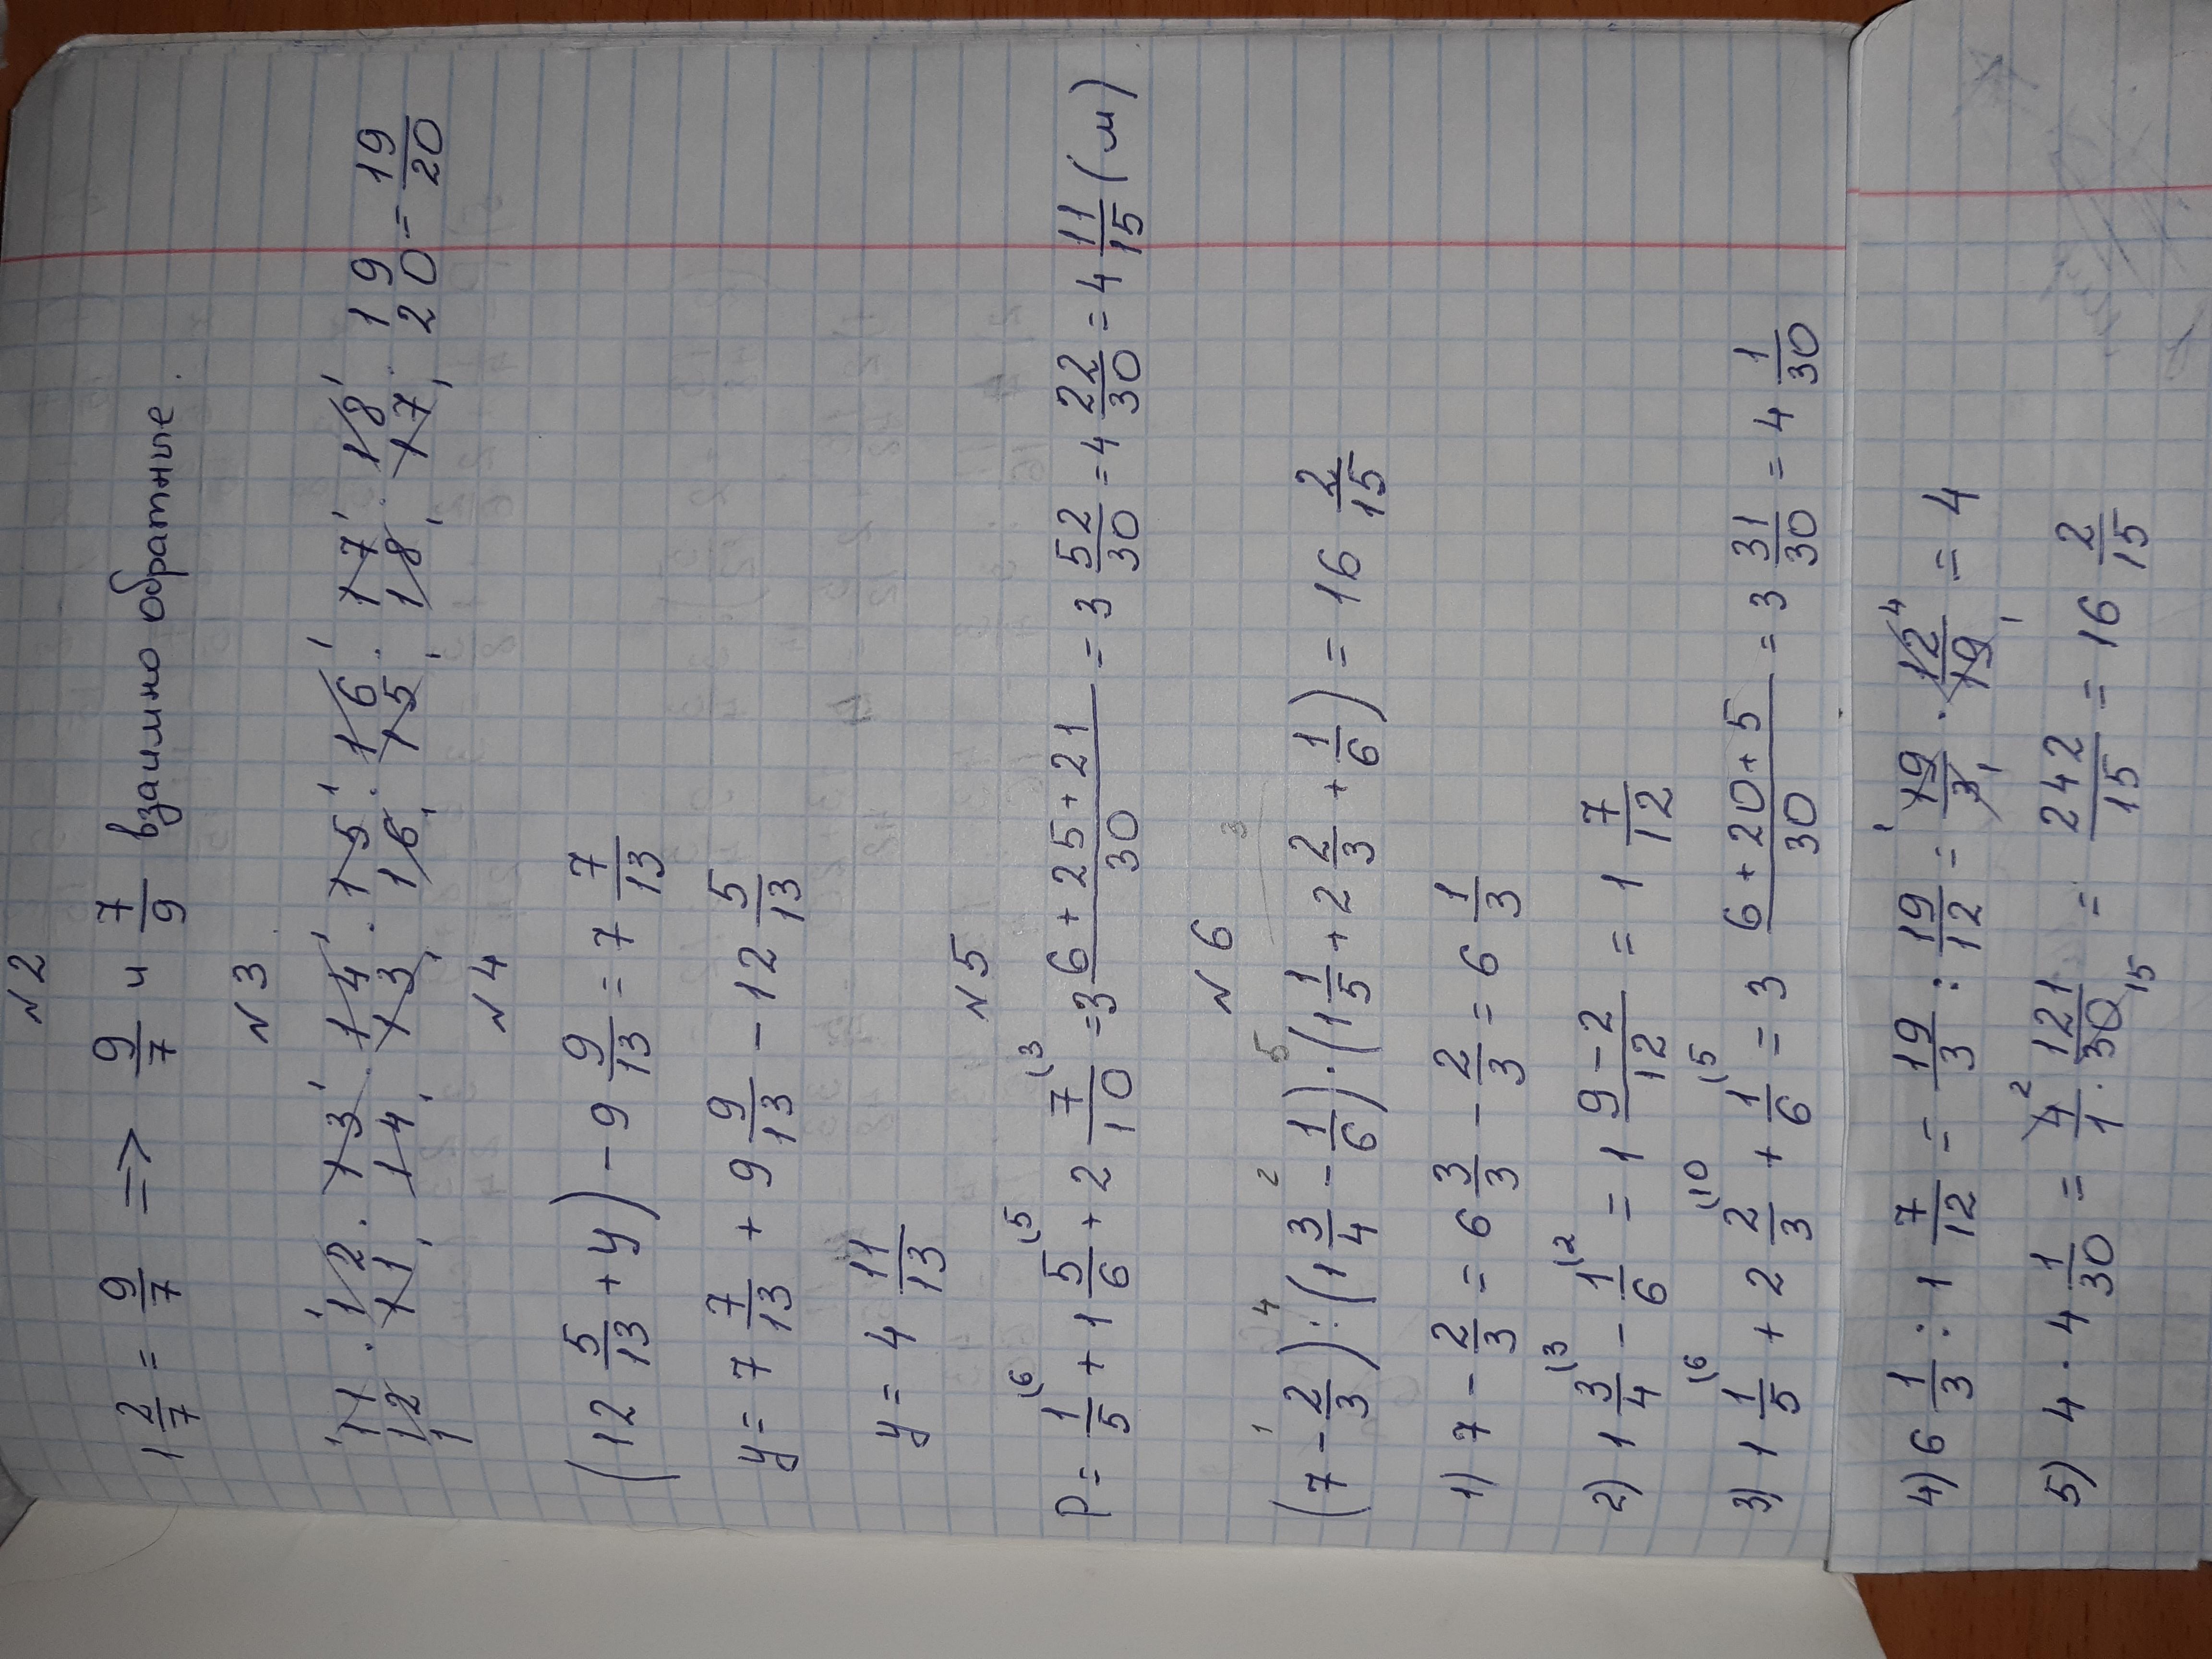 №2
1 2/7 = 9/7 => 9/7 и 7/9 взаимно обратные.
№3
11/12 · 12/11 · 13/14 · 14/13 · 15/16 · 16/15 · 17/18 · 18/17 · 19/20 = 19/20
№4
(12 5/13 + y) - 9 9/13 = 7 7/13
y = 7 7/13 + 9 9/13 - 12 5/13
y = 4 11/13
№5
P = 1/5 (6 + 1 5/6 (5 + 2 7/10 (3 = 3 6+25+21/30 = 3 52/30 = 4 22/30 = 4 11/15 (м)
№6
(7 - 2/3) : (1 3/4 - 1/6) · (1 1/5 + 2 2/3 + 1/6) = 16 2/15
1) 7 - 2/3 = 6 3/3 - 2/3 = 6 1/3
2) 1 3/4 (3 - 1/6 (2 = 1 9-2/12 = 1 7/12
3) 1 1/5 (6 + 2 2/3 (10 + 1/6 (5 = 3 6+20+5/30 = 3 31/30 = 4 1/30
4) 6 1/3 : 1 7/12 = 19/3 : 19/12 = 19/3 · 12/19 = 4
5) 4 · 4 1/30 = 4/1 · 121/30 = 242/15 = 16 2/15